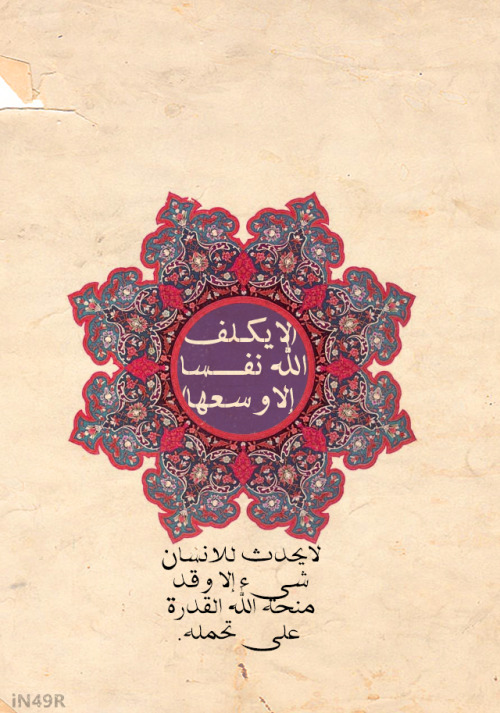 لا يكلف
الله نفسا
إلا وسعها
لا يحدث للانسان
شيء إلا وقد
منحه الله القدرة
على تحمله.
iN49R